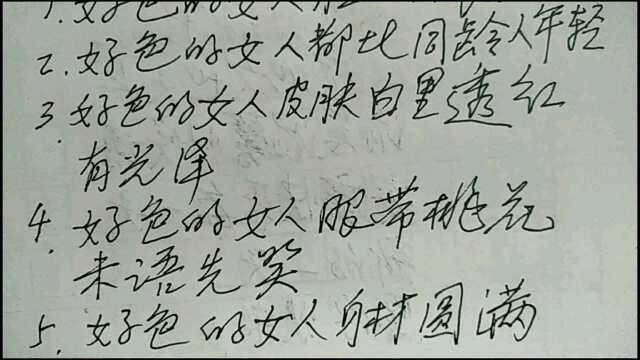 1.好色的女人
2.好色的女人都比同龄人年轻
3.好色的女人皮肤白里透红
有光泽
4.好色的女人服带桃花
未语先笑
5.好色的女人身材圆满